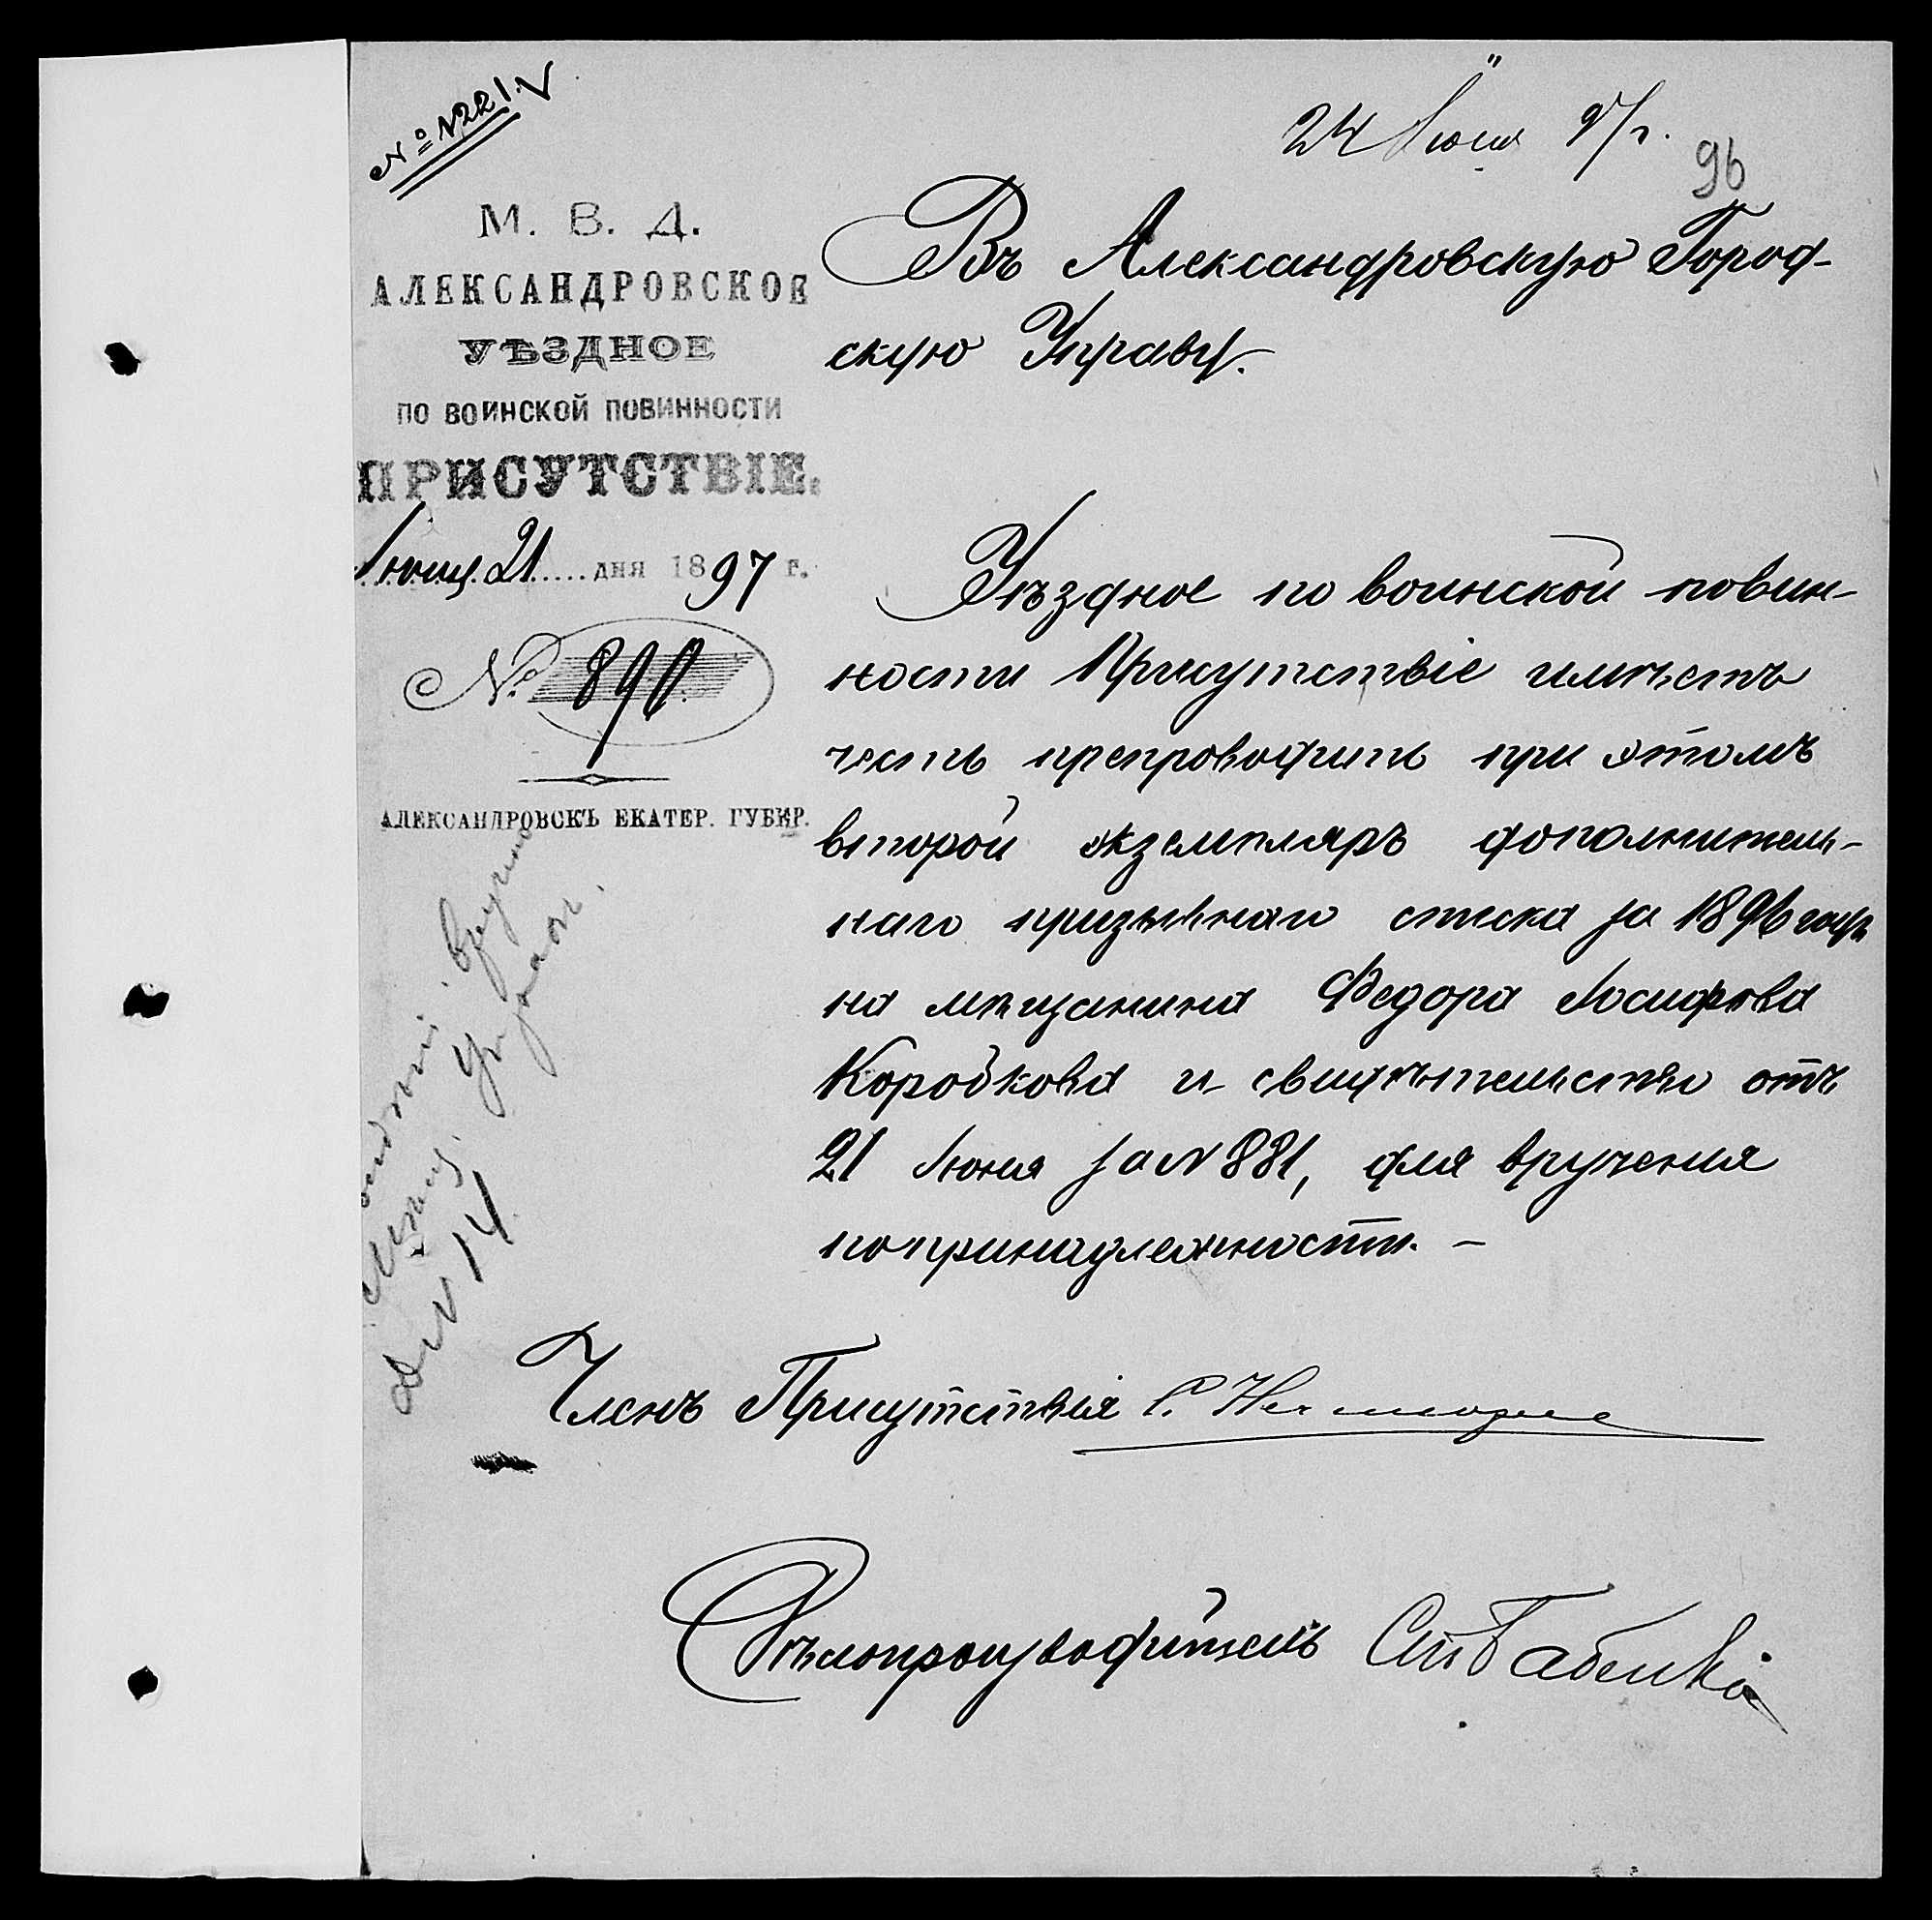 № 1221.
24 Іюня 97 г.
96
М. В. Д.
АЛЕКСАНДРОВСКОЕ
УѢЗДНОЕ
ПО ВОИНСКОЙ ПОВИННОСТИ
ПРИСУТСТВІЕ.
Іюня 21 дня 1897 г.
№ 890
АЛЕКСАНДРОВСКЪ ЕКАТЕР. ГУБЕР.
Въ Александровскую Город-
скую Управу.
Уѣздное по воинской повин-
ности Присутствіе имѣетъ
честь препроводить при этомъ
второй экземпляръ дополнитель-
наго призывнаго списка за 1896 годъ
на мѣщанина Федора Іосифова
Коробкова и свидѣтельство отъ
21 Іюня за № 881, для врученія
по принадлежности. –
вручено
№ 14
Членъ Присутствія
Дѣлопроизводитель